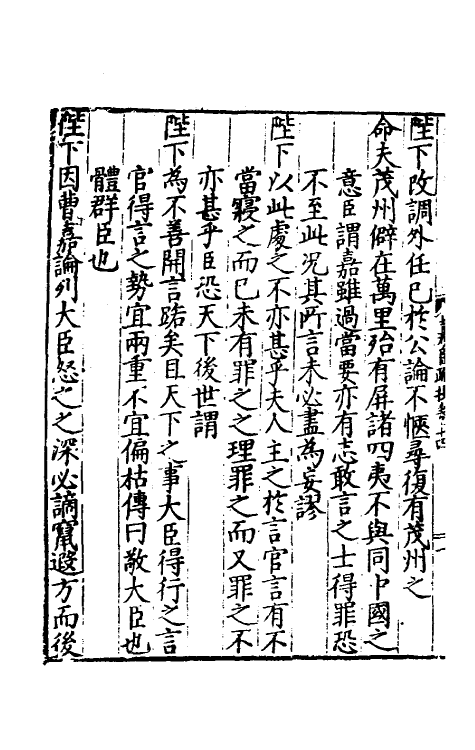 陛下改調外任已於公論不愜尋復有茂州之
命夫茂州僻在萬里殆有屏諸四夷不與同中國之
意臣謂嘉雖過當要亦有志敢言之士得罪恐
不至此况其所言未必盡為妄謬
陛下以此處之不亦甚乎夫人主之於言官言有不
當寢之而已未有罪之之理罪之而又罪之不
亦甚乎臣恐天下後世謂
陛下為不善開言路矣且天下之事大臣得行之言
官得言之勢宜兩重不宜偏枯傳曰敬大臣也
體群臣也
陛下因曹嘉論列大臣怒之之深必謫竄遐方而後